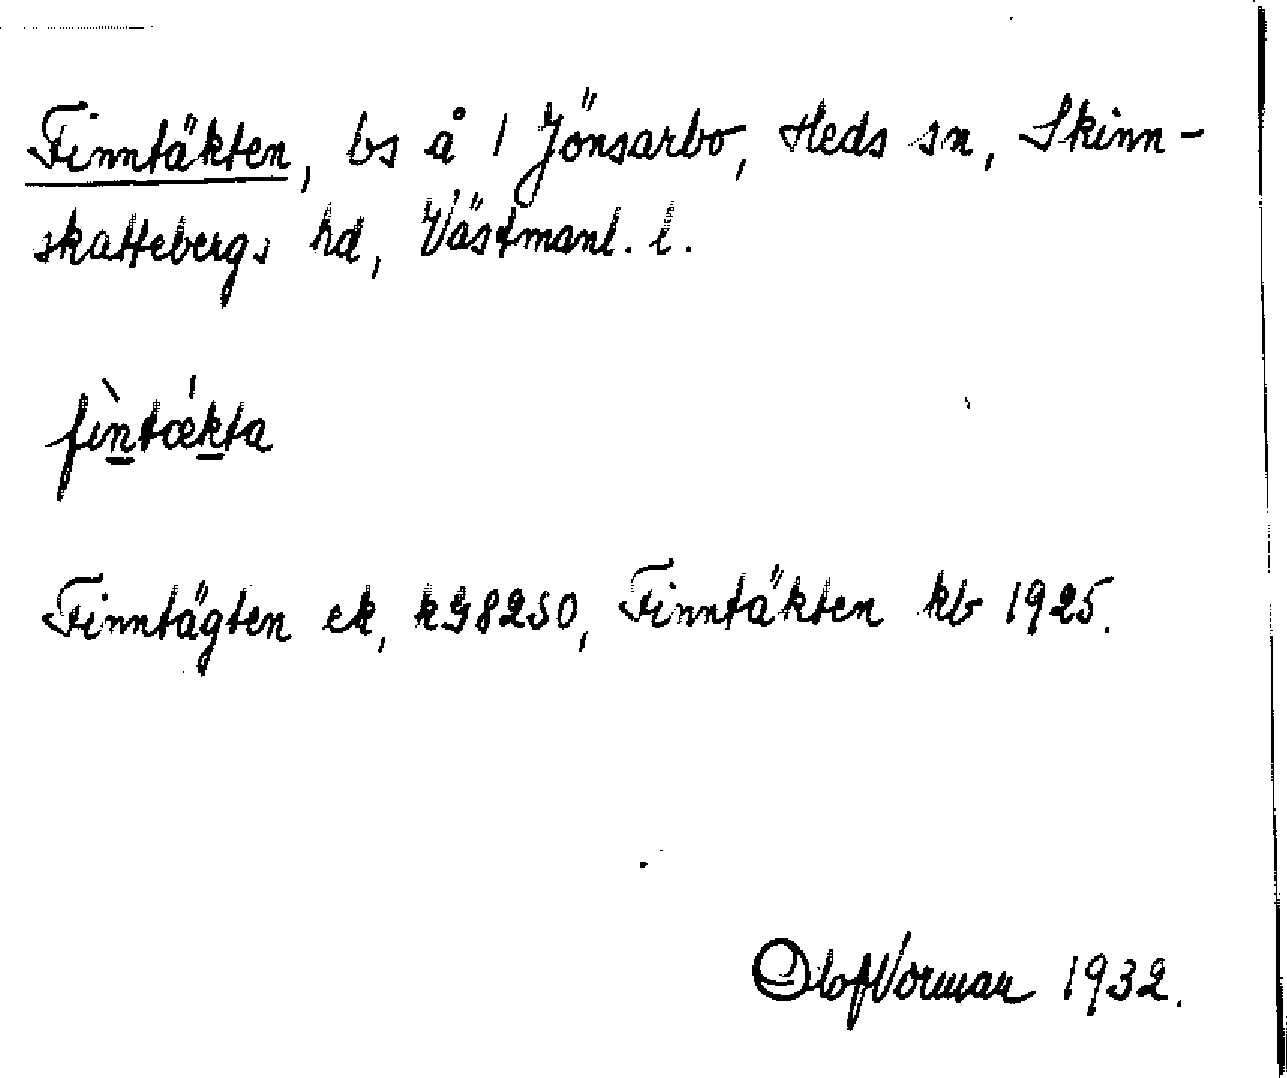 Finntäkten, bs å 1 Jönsarbo, Heds sn, Skinn-
skattebergs hd, Västmanl. l.
fìntǽkta
Finntägten ek, kG8250, Finntäkten kb 1925.
Olof Vorman 1932.